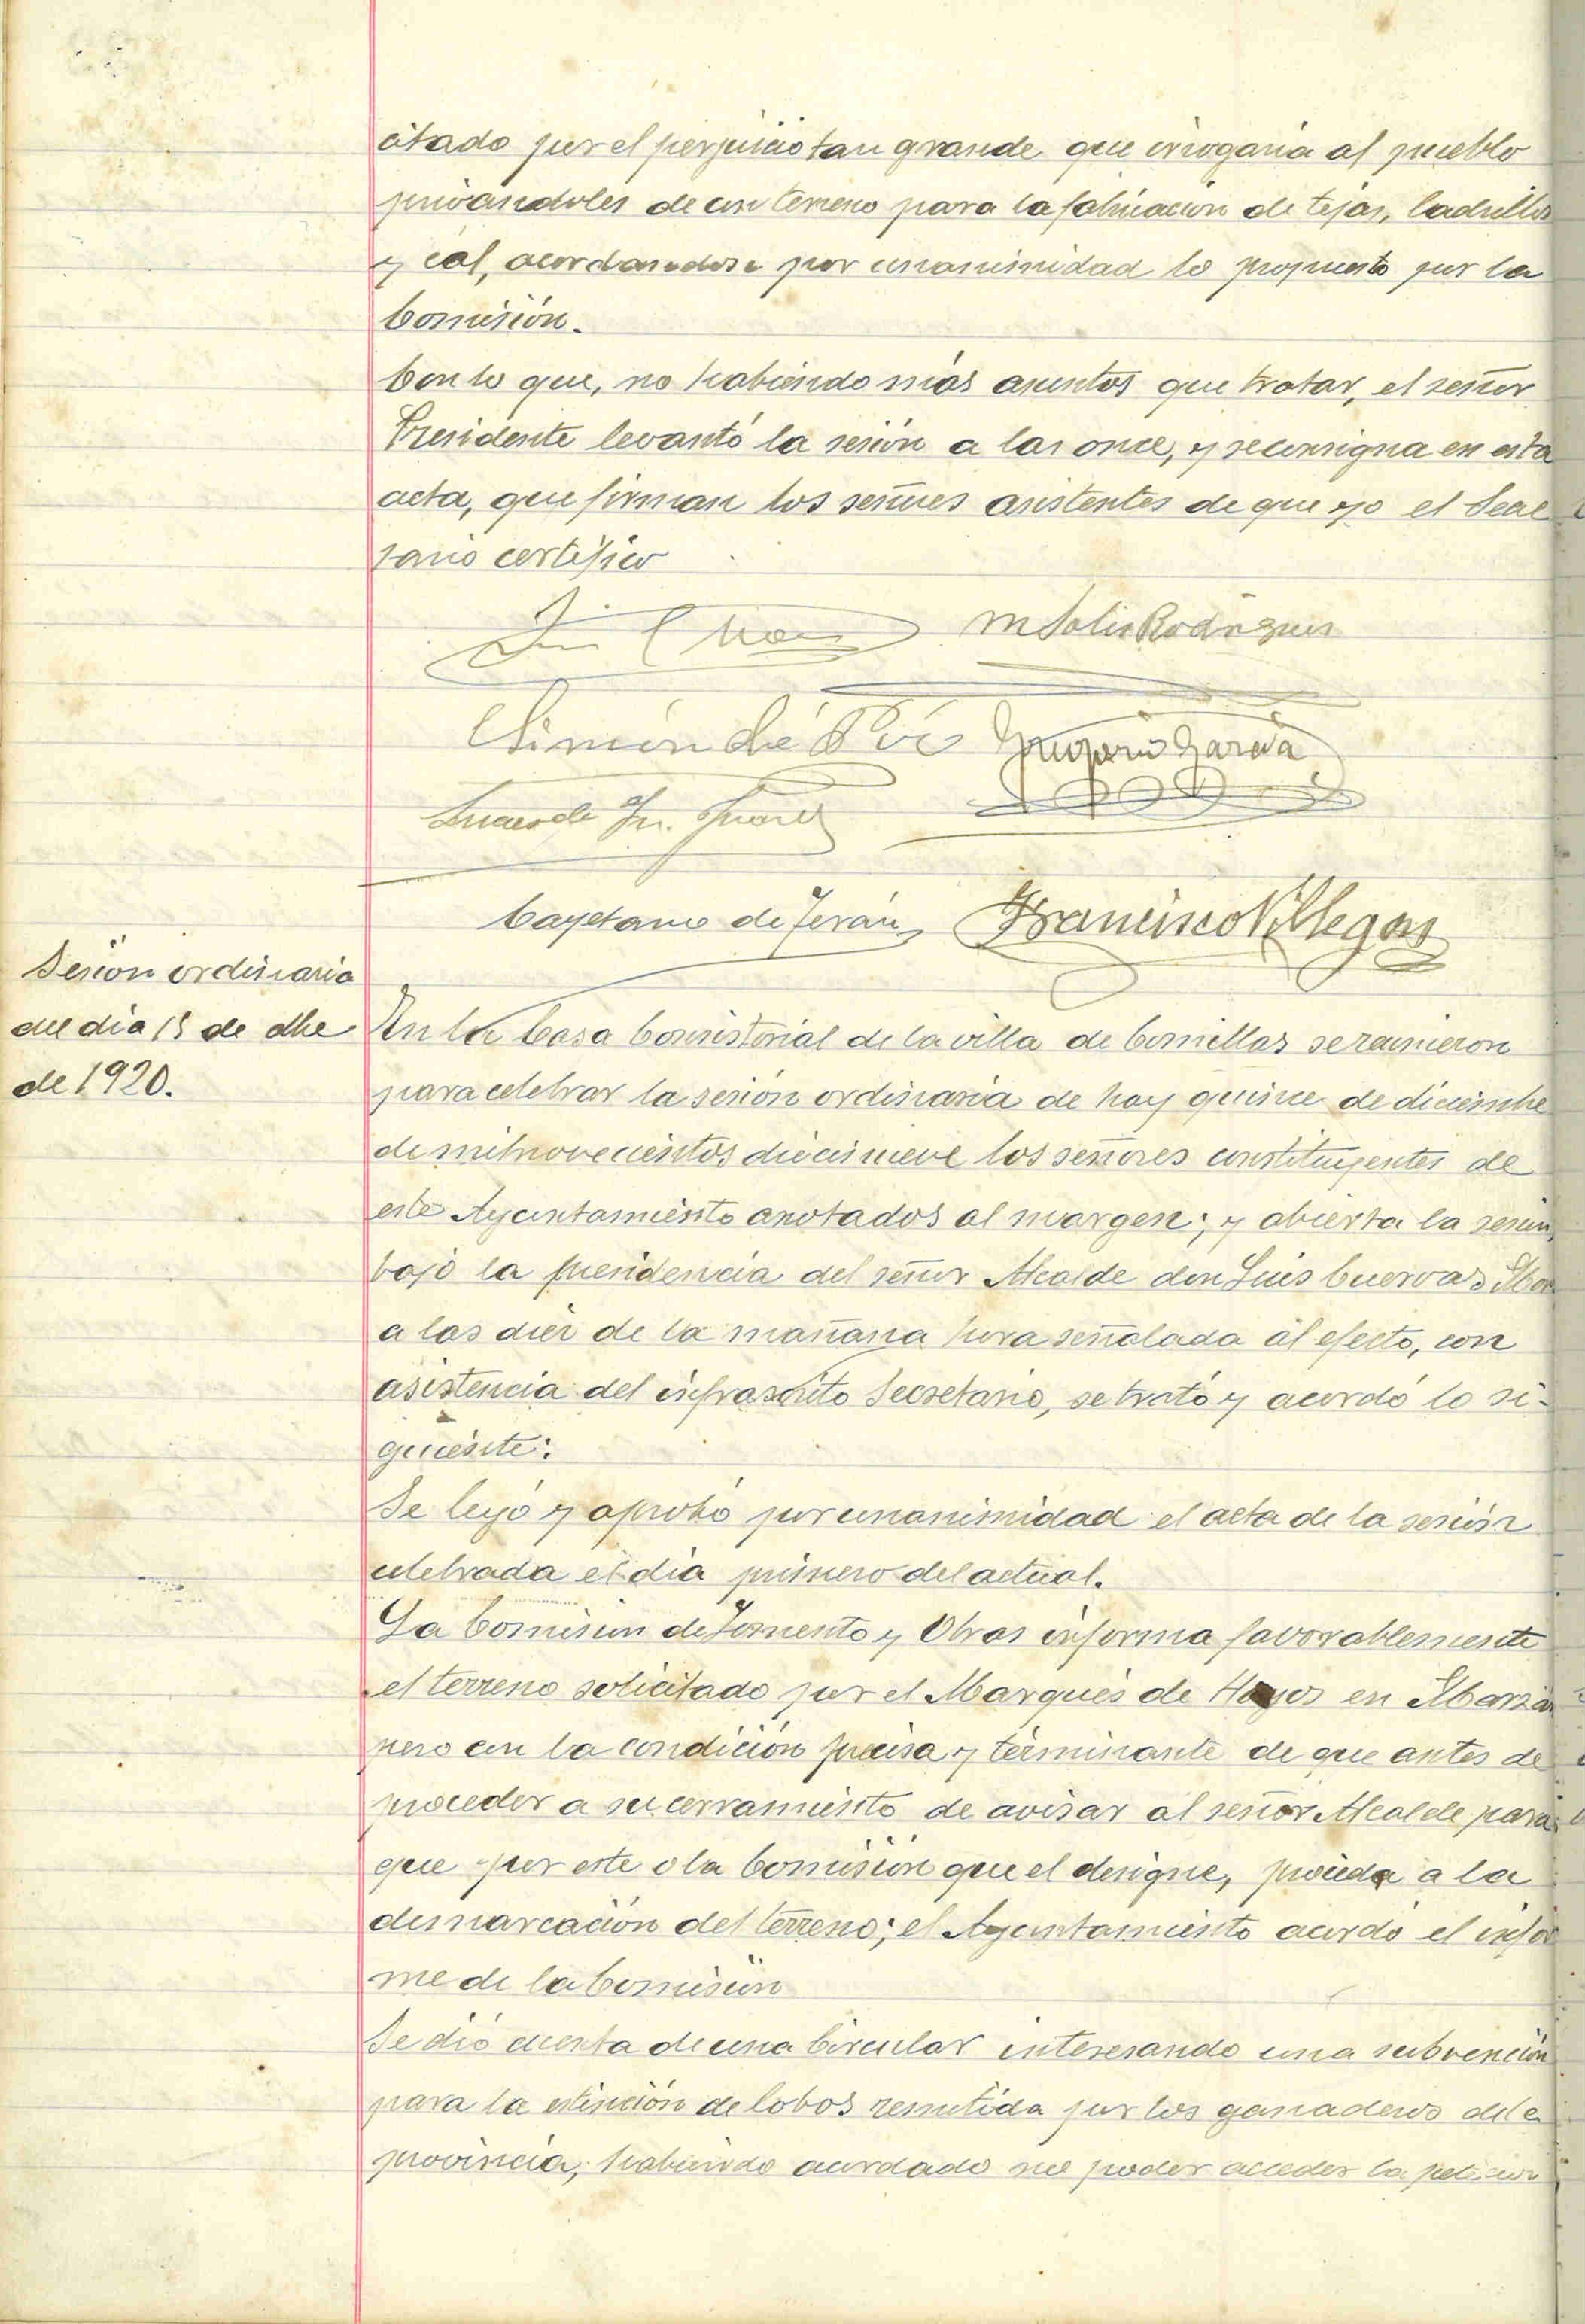 citado por el perjuicio tan grande que irrogaria al pueblo
privandoles de un terreno para la fabricacion de tejas, ladrillos
y cal, acordandose por unanimidad lo propuesto por la
Comisión.
Con lo que, no habiendo más asuntos que tratar, el señor
Presidente levantó la sesión a las once, y se consigna en esta
acta, que firman los señores asistentes de que yo el Secre
tario certifico
M Solis Rodriguez
Simón de
Gregorio Garcia
Cayetano de Terán
Francisco Villegas
Sesion ordinaria
del dia 15 de dbe
de 1920.
En la Casa Consistorial de la villa de Comillas se reunieron
para celebrar la sesión ordinaria de hoy quince de diciembre
de mil novecientos diecinueve los señores constituyentes de
este Ayuntamiento anotados al margen; y abierta la sesion,
bajo la presidencia del señor Alcalde don Luis Cuervas Mon
a las diez de la mañana hora señalada al efecto, con
asistencia del infrascrito Secretario, se trató y acordó lo si-
guiente:
Se leyó y aprobó por unanimidad el acta de la sesión
celebrada el dia primero del actual.
La Comision de Fomento y Obras informa favorablemente
el terreno solicitado por el Marqués de Hoyos en
pero con la condición precisa y terminante de que antes de
proceder a su cerramiento de avisar al señor Alcalde para
que por este o la Comisión que el designe, proceda a la
demarcación del terreno; el Ayuntamiento acordó el infor
me de la Comisión
Se dió cuenta de una Circular interesando una subvención
para la estinción de lobos remitida por los ganaderos de la
provincia, habiendo acordado no poder acceder la peticion